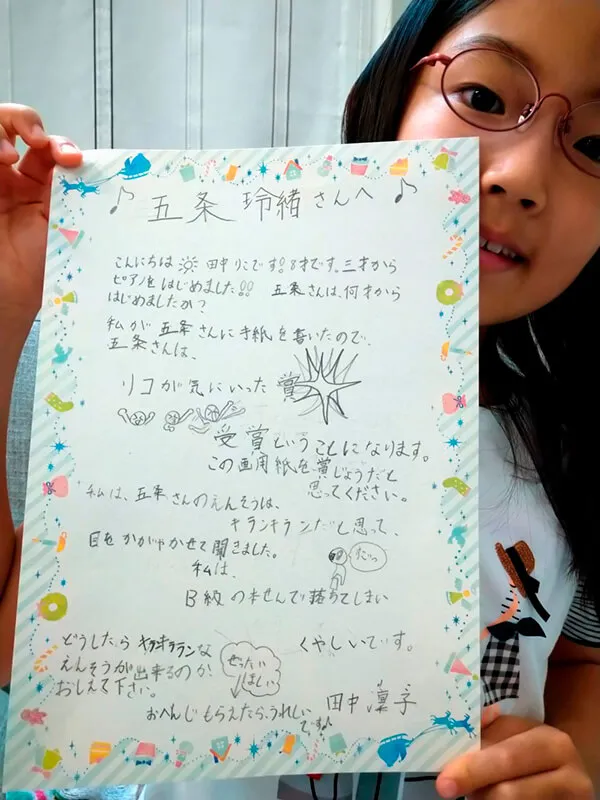 ♪ 五条 玲緒さんへ ♪
こんにちは 田中りこです!! 8才です。三才から
ピアノをはじめました!! 五条さんは、何才から
はじめましたか?
私が五条さんに手紙を書いたので、
五条さんは、
リコが気にいった賞
受賞ということになります。
この画用紙を賞じょうだと
思ってください。
私は、五条さんのえんそうは、
キランキランだと思って、
目をかがやかせて聞きました。
私は、
B級の本せんで落ちてしまい
くやしいです。
どうしたら キラキラランな
えんそうが出来るのか
おしえて下さい。
ぜったい
ほしい
おへんじもらえたらうれしい
です♪
田中 凜子